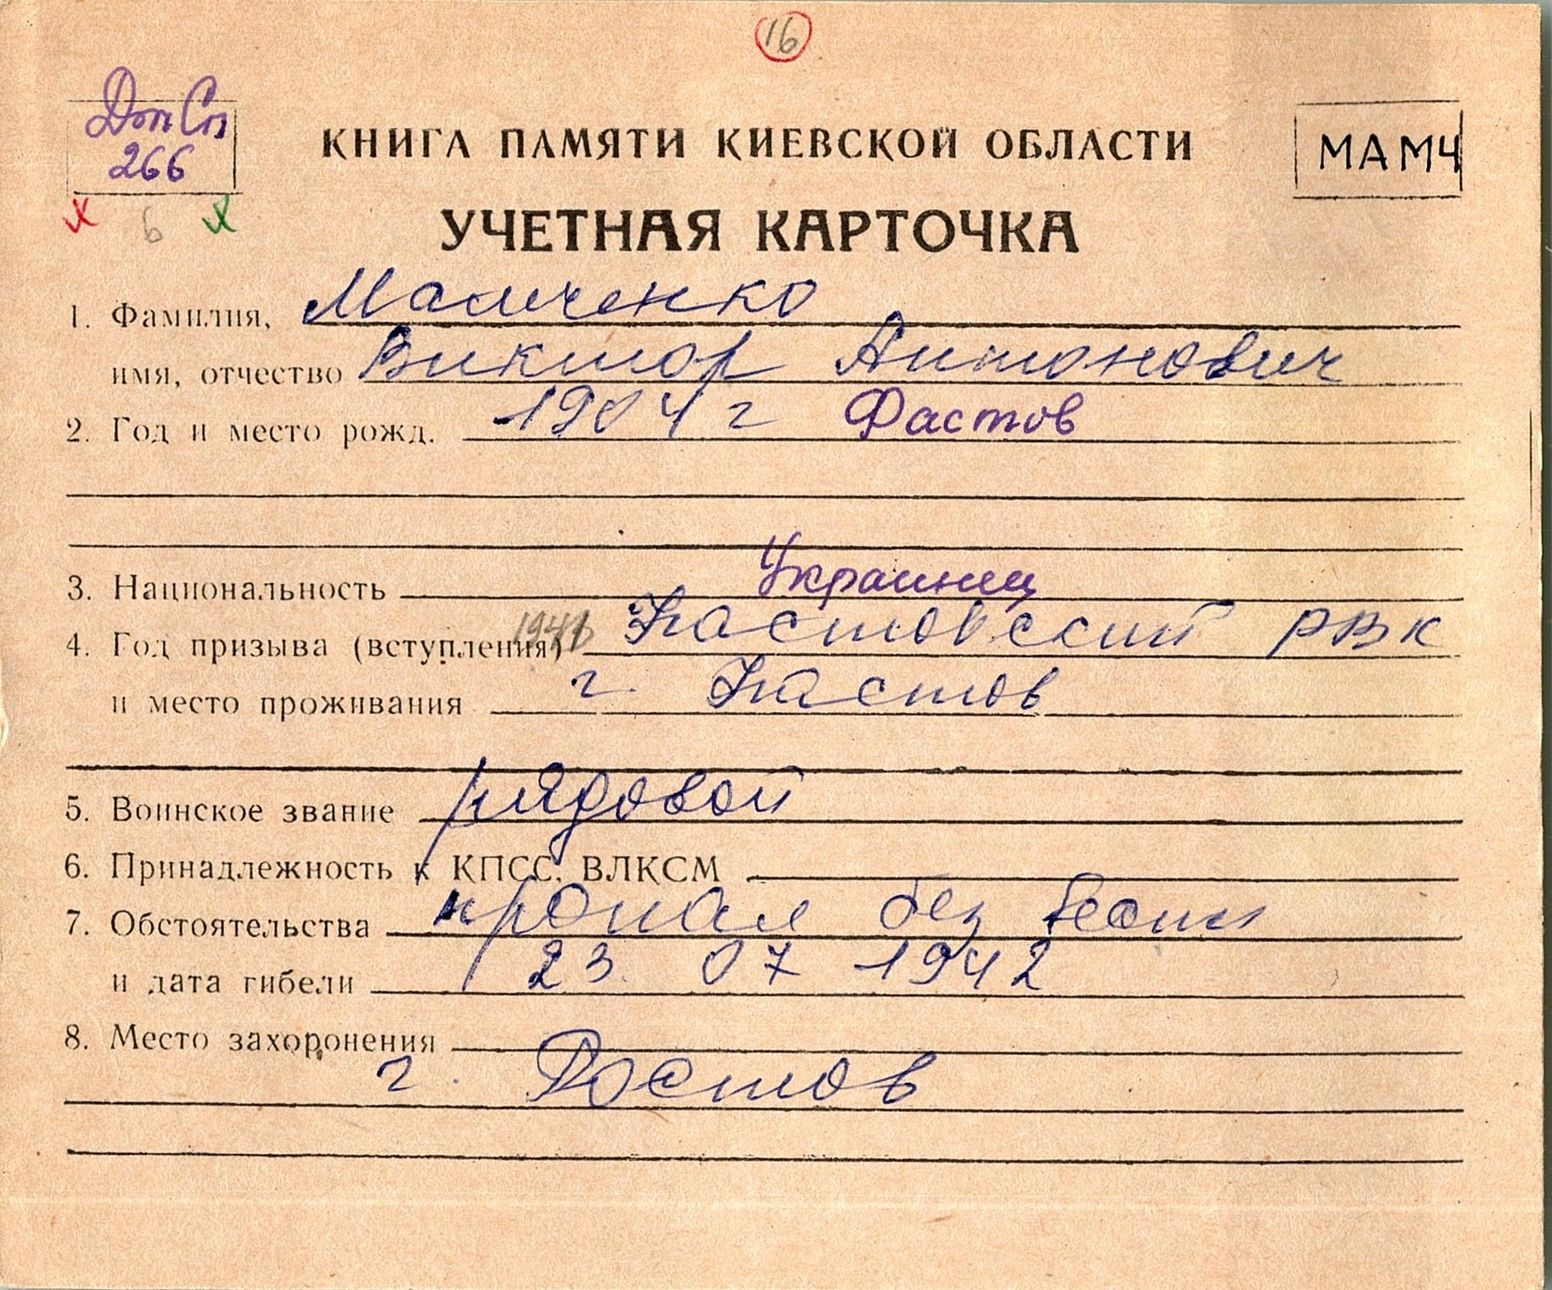 16
Доп Сп
266
КНИГА ПАМЯТИ КИЕВСКОЙ ОБЛАСТИ
МАМЧ
6
УЧЕТНАЯ КАРТОЧКА
1. Фамилия, Мамченко
имя, отчество Виктор Антонович
2. Год и место рожд. 1904 г Фастов
3. Национальность Украинец
4. Год призыва (вступления) 1941 Фастовский РВК
и место проживания г. Фастов
5. Воинское звание рядовой
6. Принадлежность к КПСС, ВЛКСМ
7. Обстоятельства пропал без вести
и дата гибели 23. 07 1942
8. Место захоронения
г. Ростов